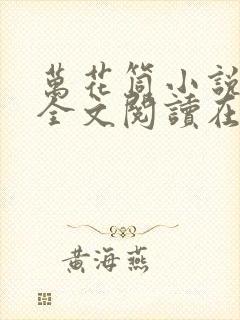 萬花筒小說
全文閱讀在
黃海燕